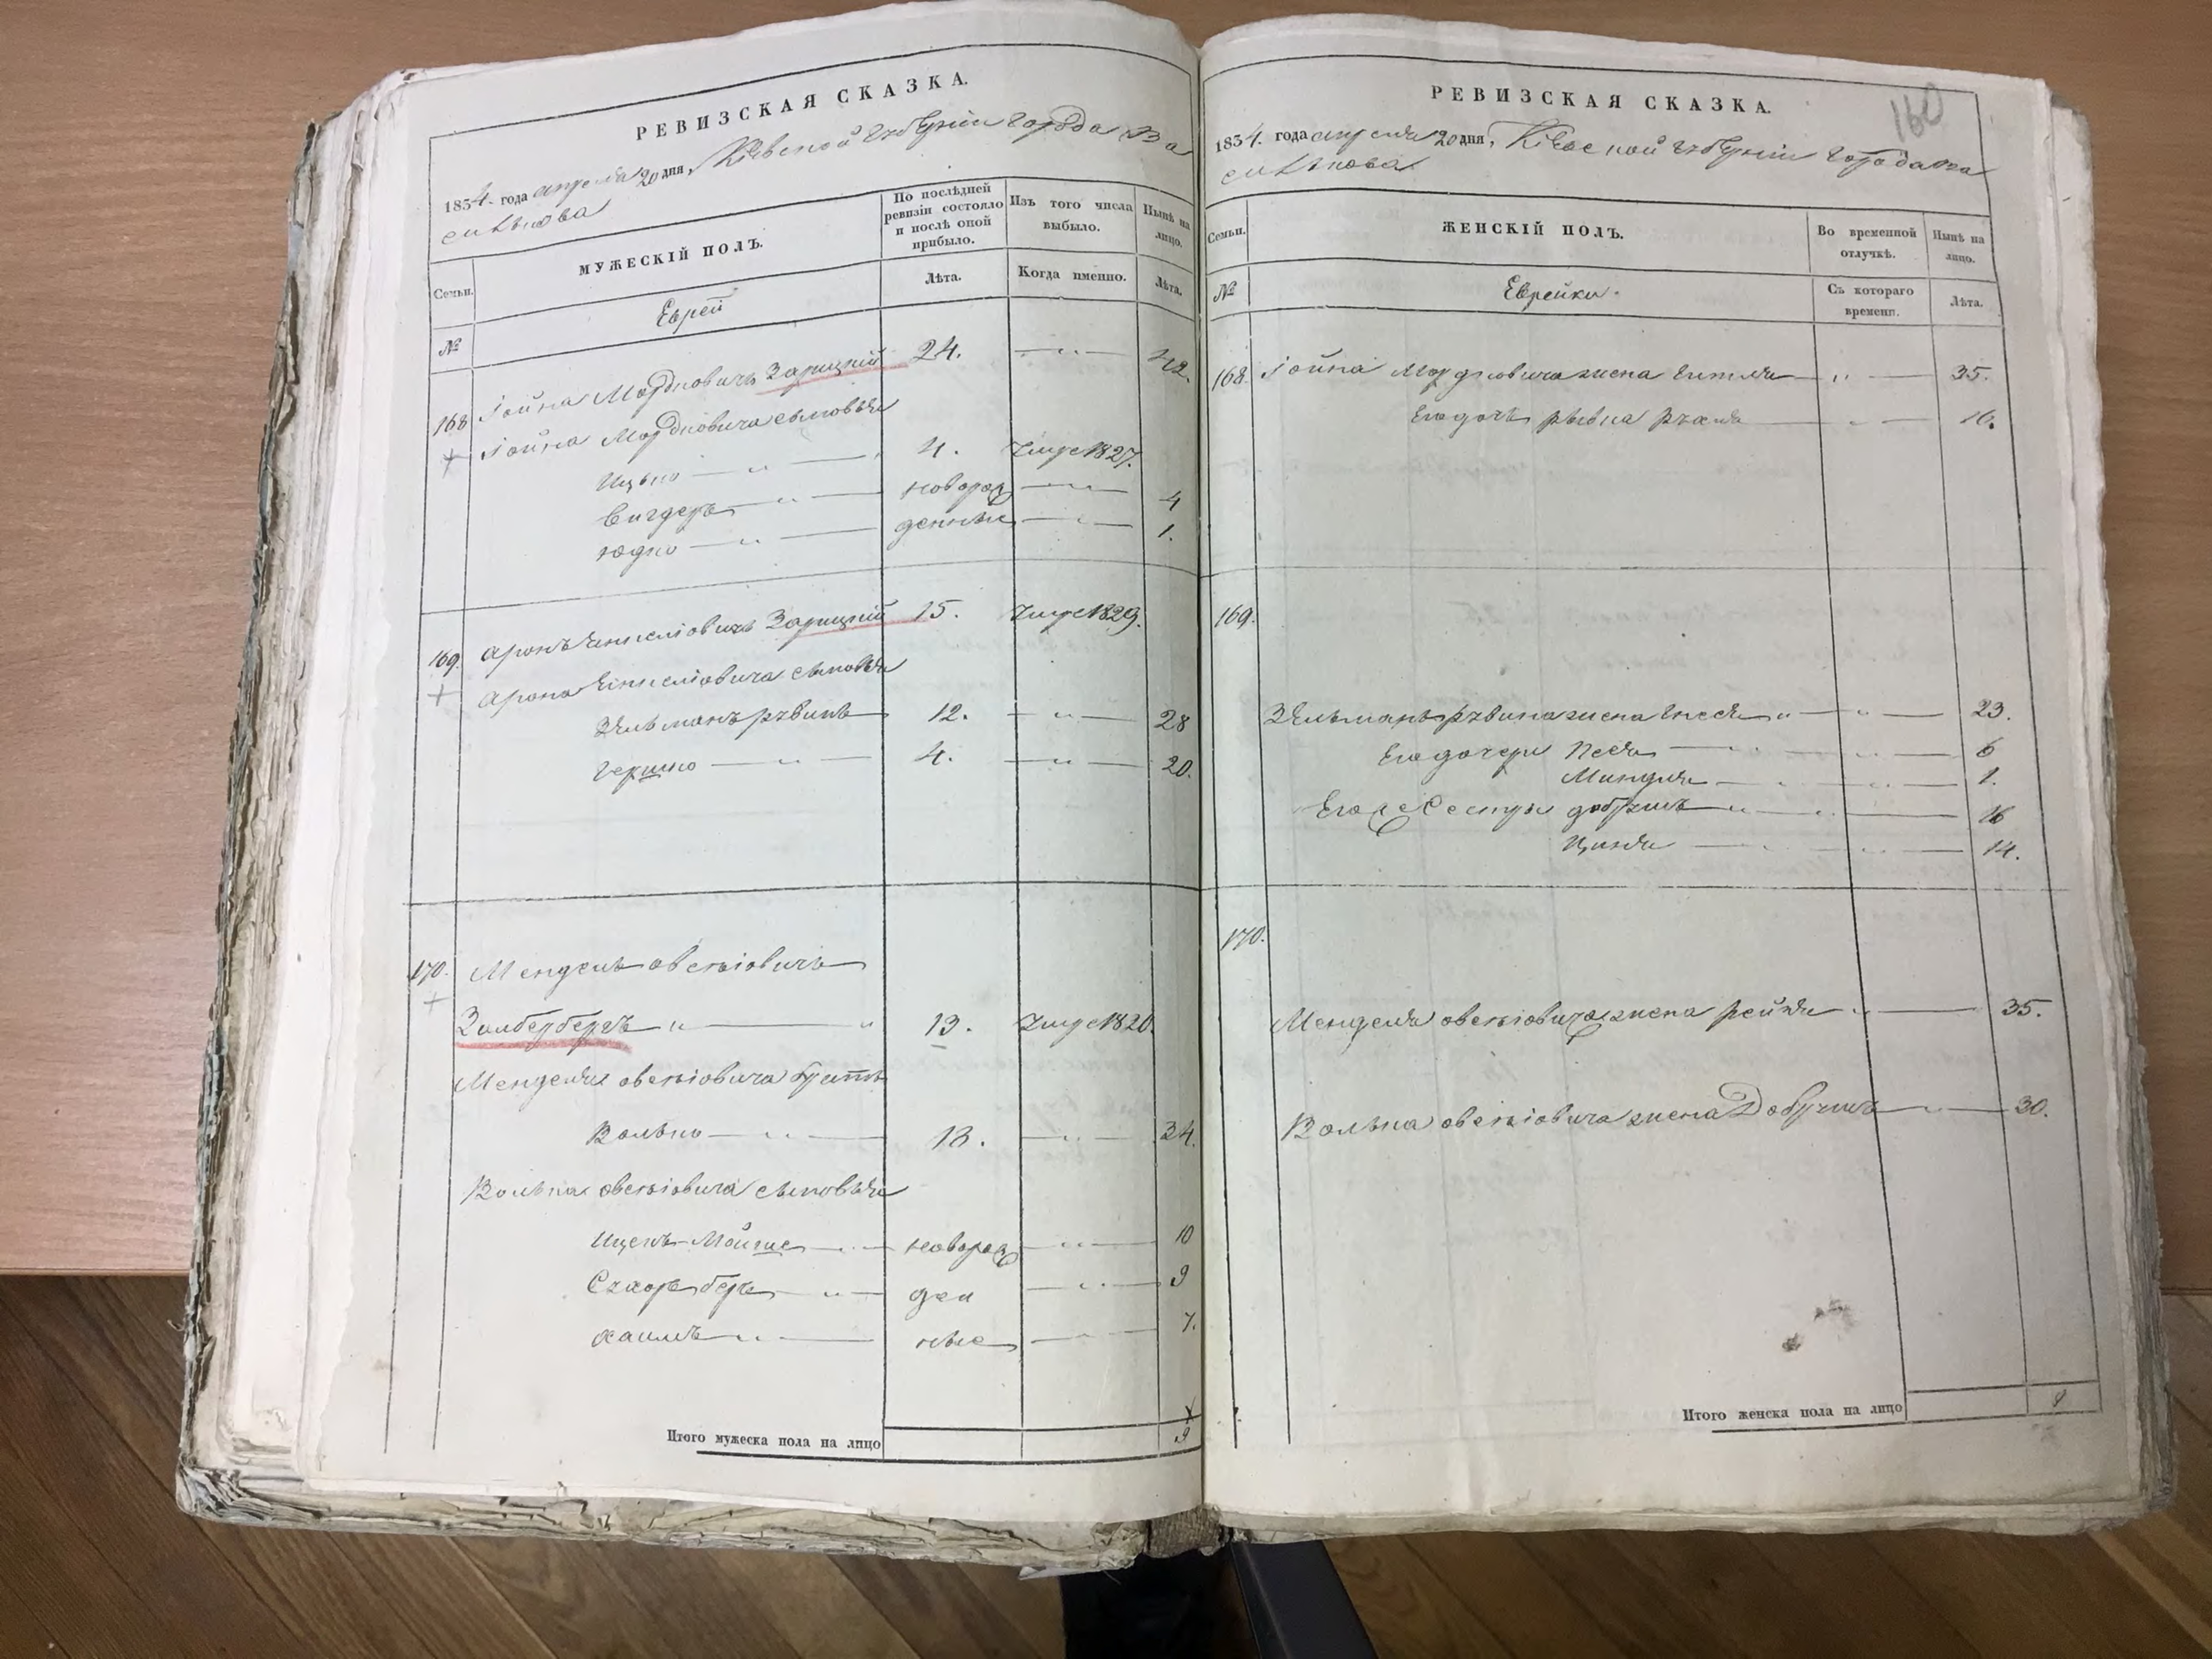 РЕВИЗСКАЯ СКАЗКА.
1834. года апреля 20 дня, Кіевской губерніи города Ва
силькова
Семьи.
МУЖЕСКІЙ ПОЛЪ.
По послѣдней ревизіи состояло и послѣ оной прибыло.
Изъ того числа выбыло.
Нынѣ на лицо.
Лѣта.
Когда именно.
Лѣта.
№
Еврей
168 Іойна Мордковичъ Зарицкій 24. 42.
Іойна Мордковича сыновья
Ицько 4. Умре 1827.
Вигдеръ новорож 4
Юдко денные 1.
169. Аронъ Зарицкій 15. Умре 1829.
Арона сыновья
Зельманъ Рувинъ 12. 28
Гершко 4. 20.
170. Мендель Овсѣіовичъ
Зильбербергъ 13. Умре 1820.
Менделя Овсѣіовича братъ
Волько 18. 34.
Волька Овсѣіовича сыновья
Ицекъ-Мойше новорож 10
Сухоръ беръ ден 9
Хаимъ ные 7.
Итого мужеска пола на лицо 9
РЕВИЗСКАЯ СКАЗКА.
160
1834. года апреля 20 дня, Кіевской губерніи города Ва
силькова
Семьи.
ЖЕНСКІЙ ПОЛЪ.
Во временной отлучкѣ.
Нынѣ на лицо.
№
Еврейки.
Съ котораго времени.
Лѣта.
168. Іойна Мордковича жена 35.
Его дочь Рывка Рухля 10.
169.
Зельмана Рувина жена 23.
Его дочери Песя 6
Миндля 1.
Его сестры Добрушъ 16
Ципа 14.
170.
Менделя Овсѣіовича жена Рейзя 35.
Волька Овсѣіовича жена Добрушъ 30.
Итого женска пола на лицо 9